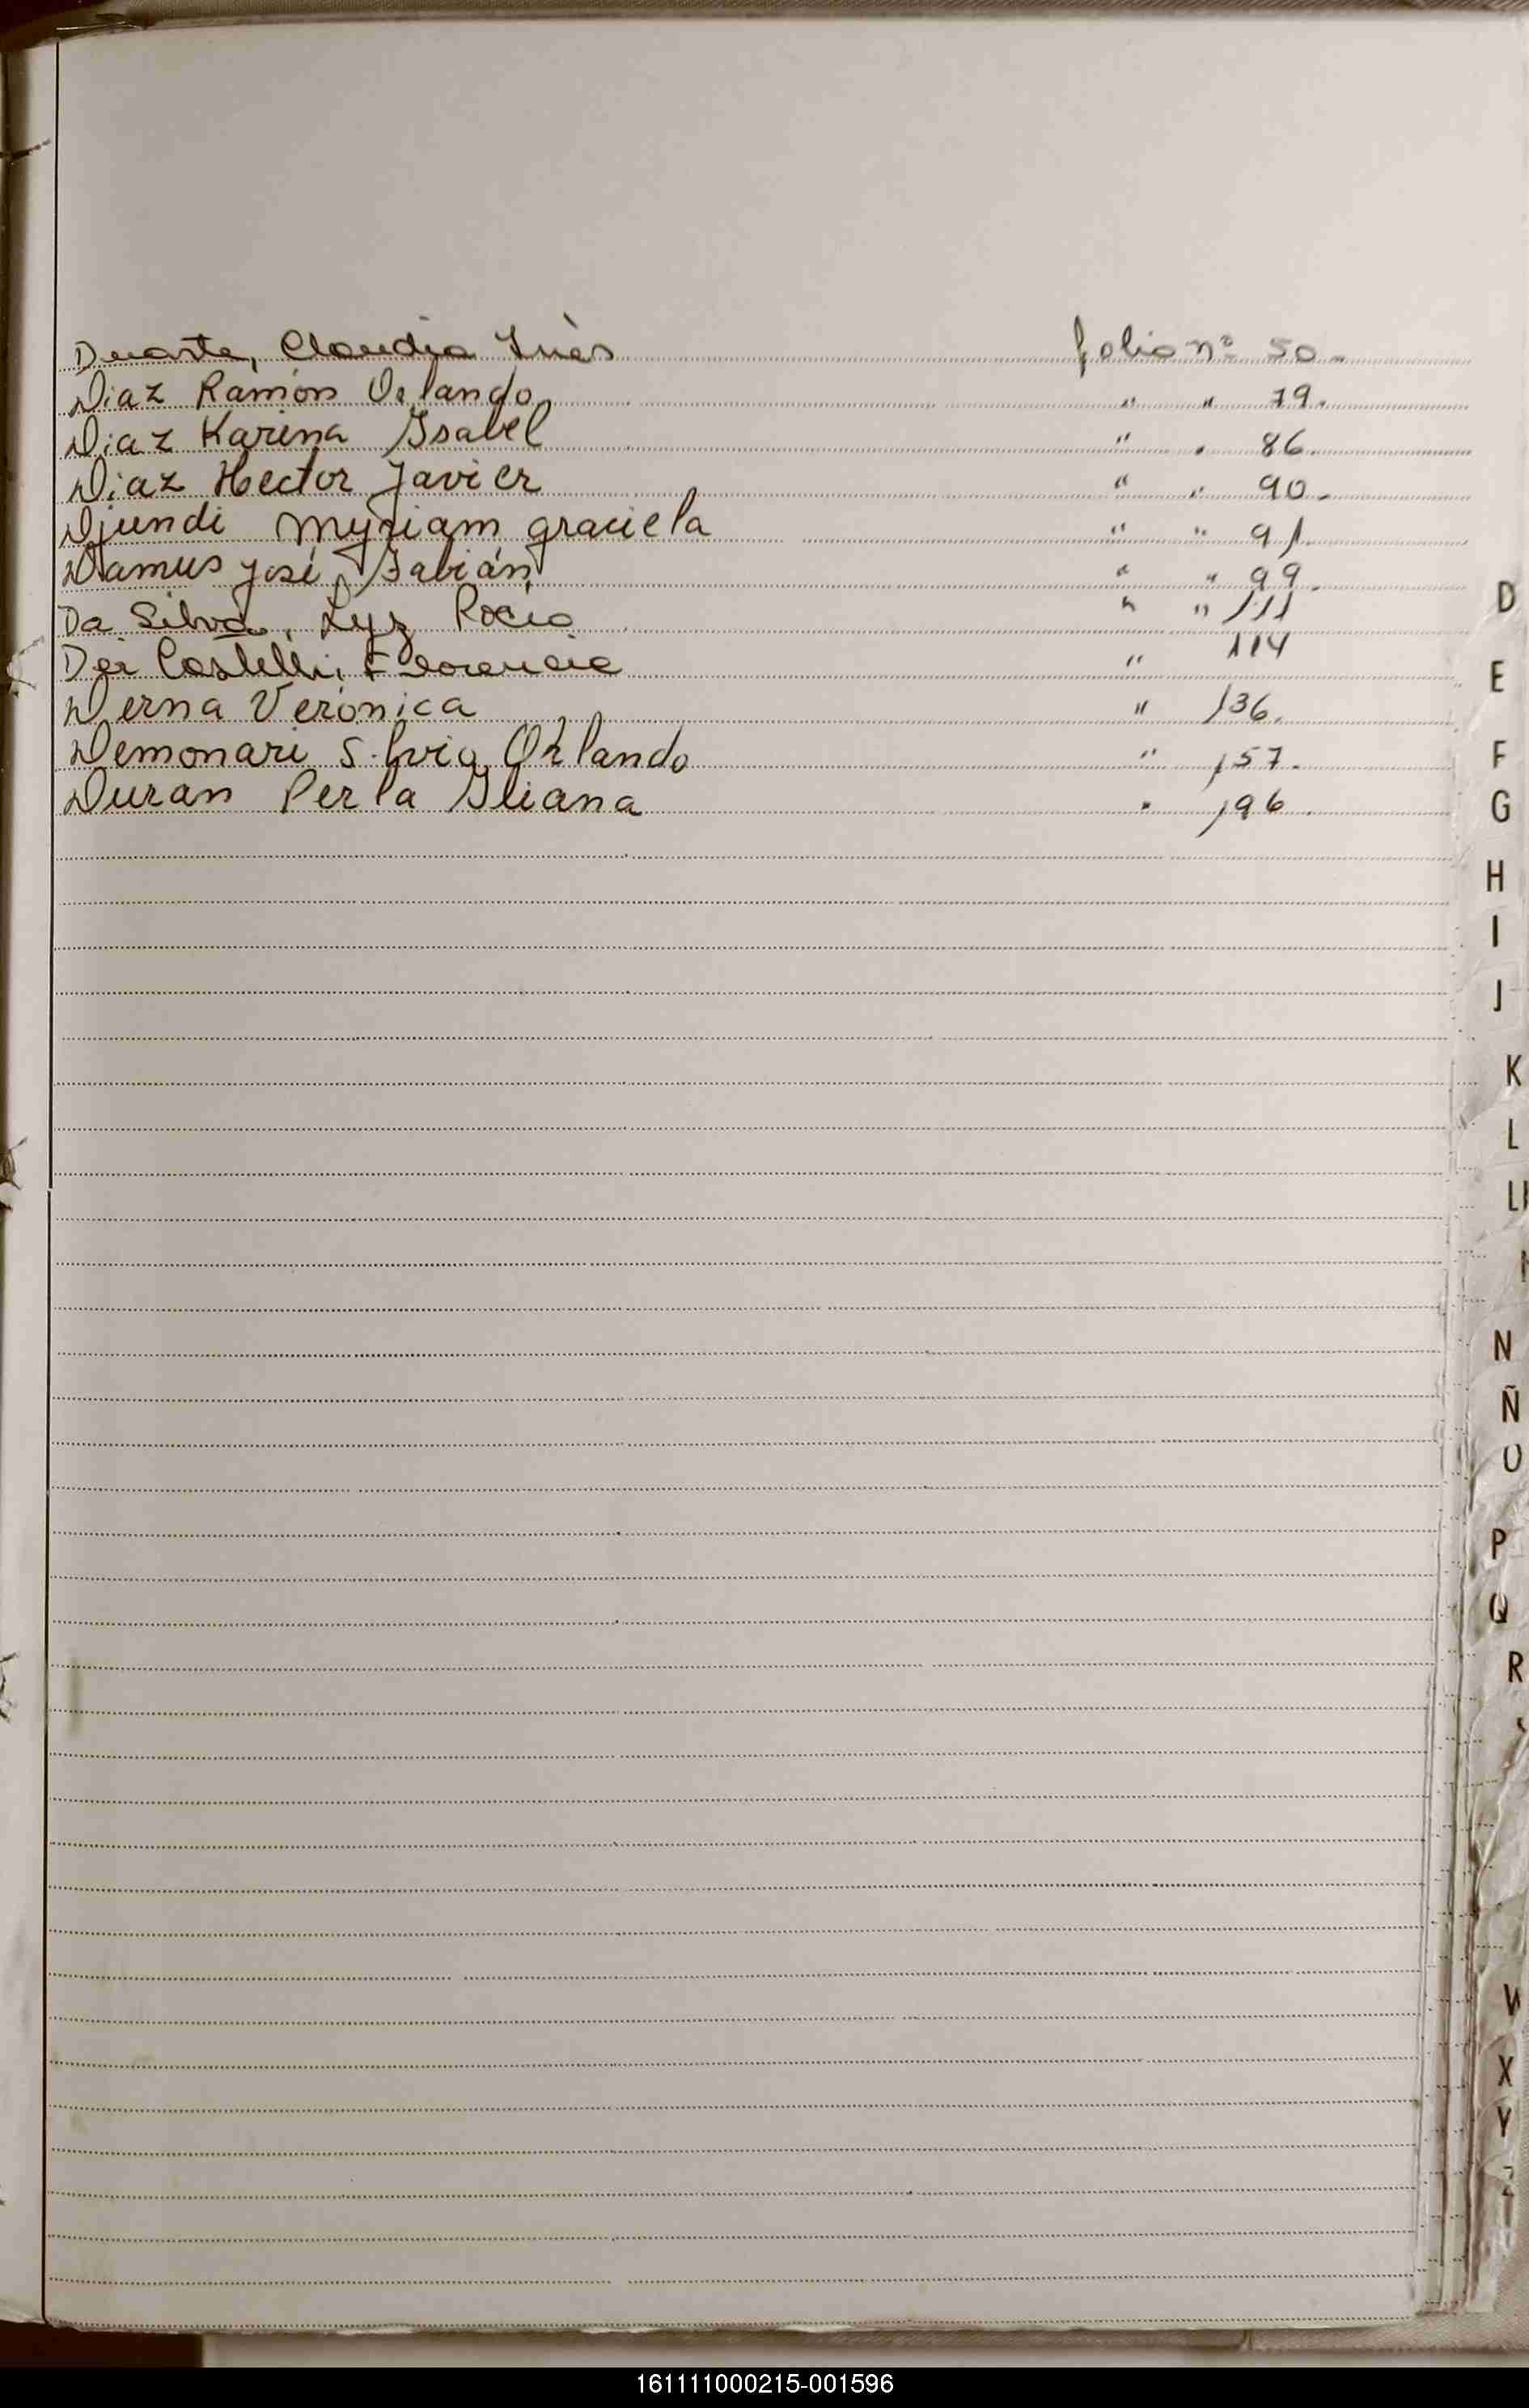 Duarte, Claudia Inès folio nº 50.
Diaz Ramón Orlando " " 79.
Diaz Karina Isabel " " 86.
Diaz Hector Javier " " 90.
Djundi Myriam graciela " " 91.
Damus José Fabián " " 99.
Da Silva, Lyz Rocio " " 111
Dei Castelli, Florencia " 114
Derna Verónica " 136.
Demonari Silvio Orlando " 157.
Duran Perla Iliana " 196.
D
E
F
G
H
I
J
K
L
Ll
N
Ñ
O
P
Q
R
X
Y
Z
161111000215-001596